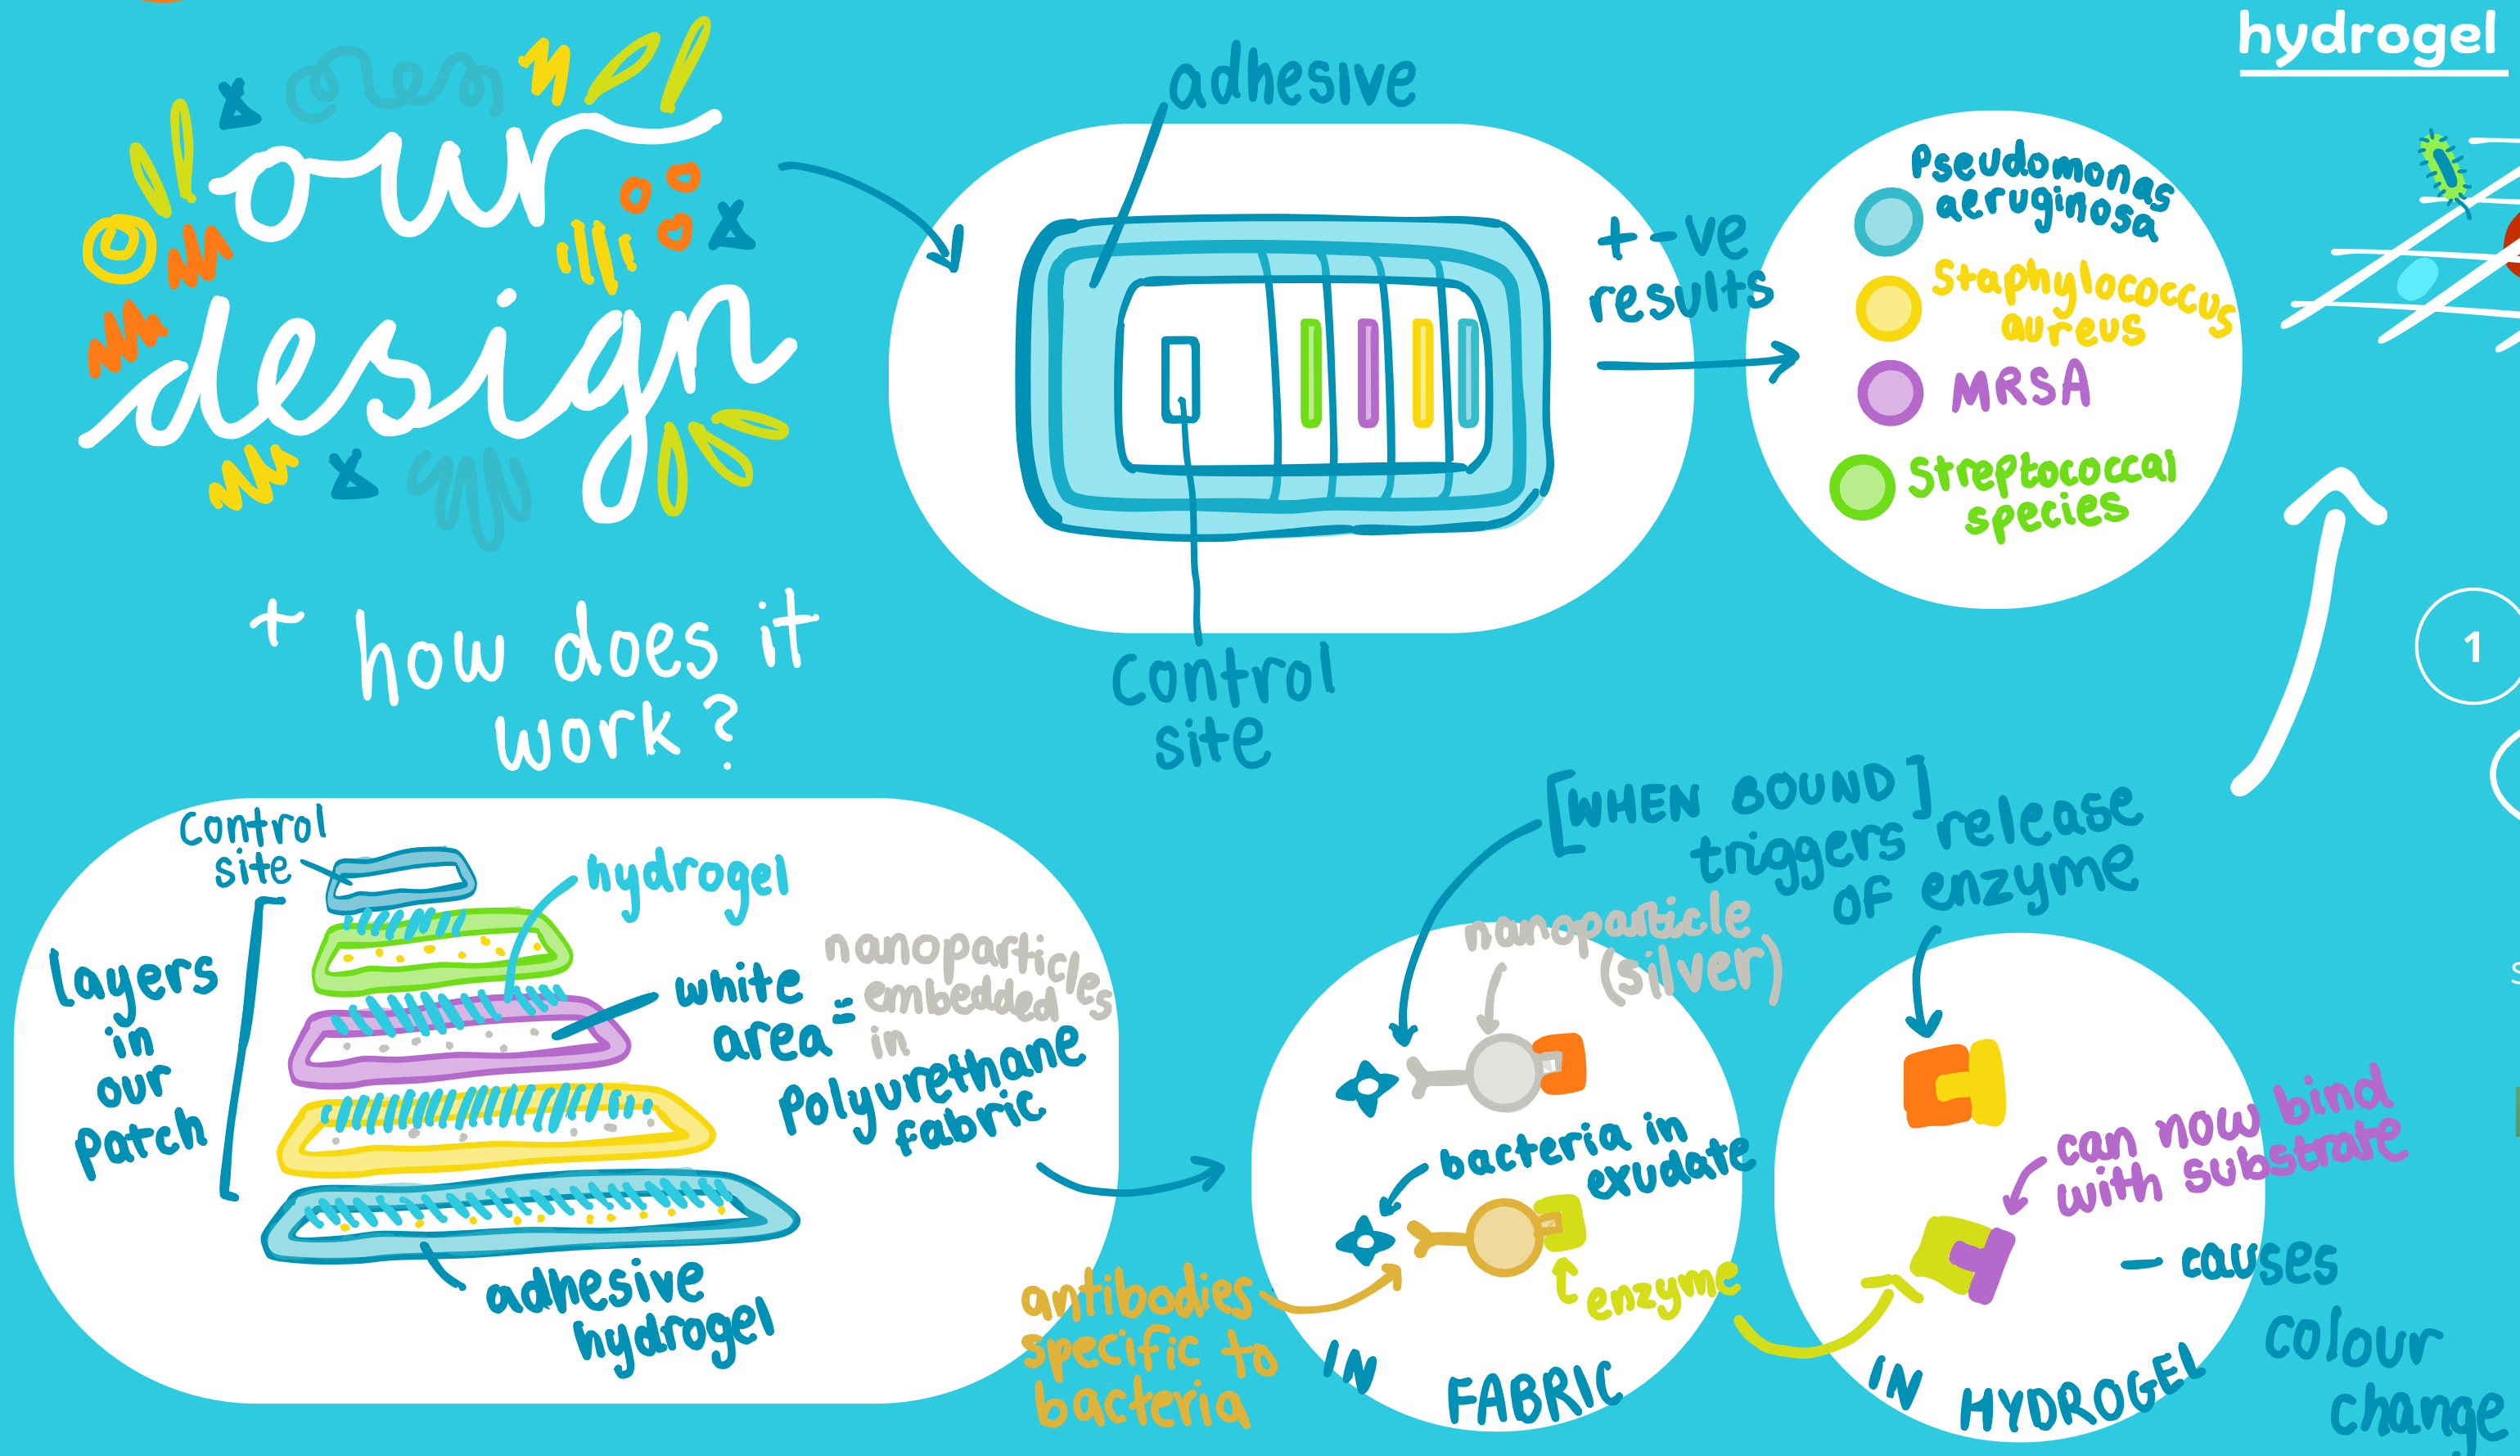 our
design
+ how does it
work?
adhesive
control
site
+ -ve
results
Pseudomonas
aeruginosa
Staphylococcus
aureus
MRSA
Streptococcal
species
hydrogel
1
control
site
hydrogel
layers
in
our
patch
white
area =
nanoparticles
embedded
in
polyurethane
fabric
adhesive
hydrogel
[WHEN BOUND]
triggers release
of enzyme
nanoparticle
(silver)
bacteria in
exudate
enzyme
antibodies
specific to
bacteria
IN FABRIC
can now bind
with substrate
- causes
colour
change
IN HYDROGEL